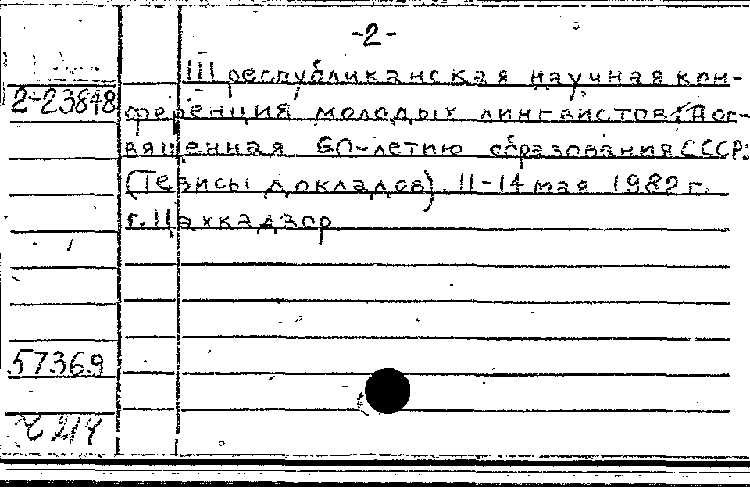 -2-
III республиканская научная кон-
2-23848
ференция молодых лингвистов, Пос-
вященная 60-летию образования СССР:
(Тезисы докладов). 11-14 мая 1982 г.
г. Цахкадзор
57369